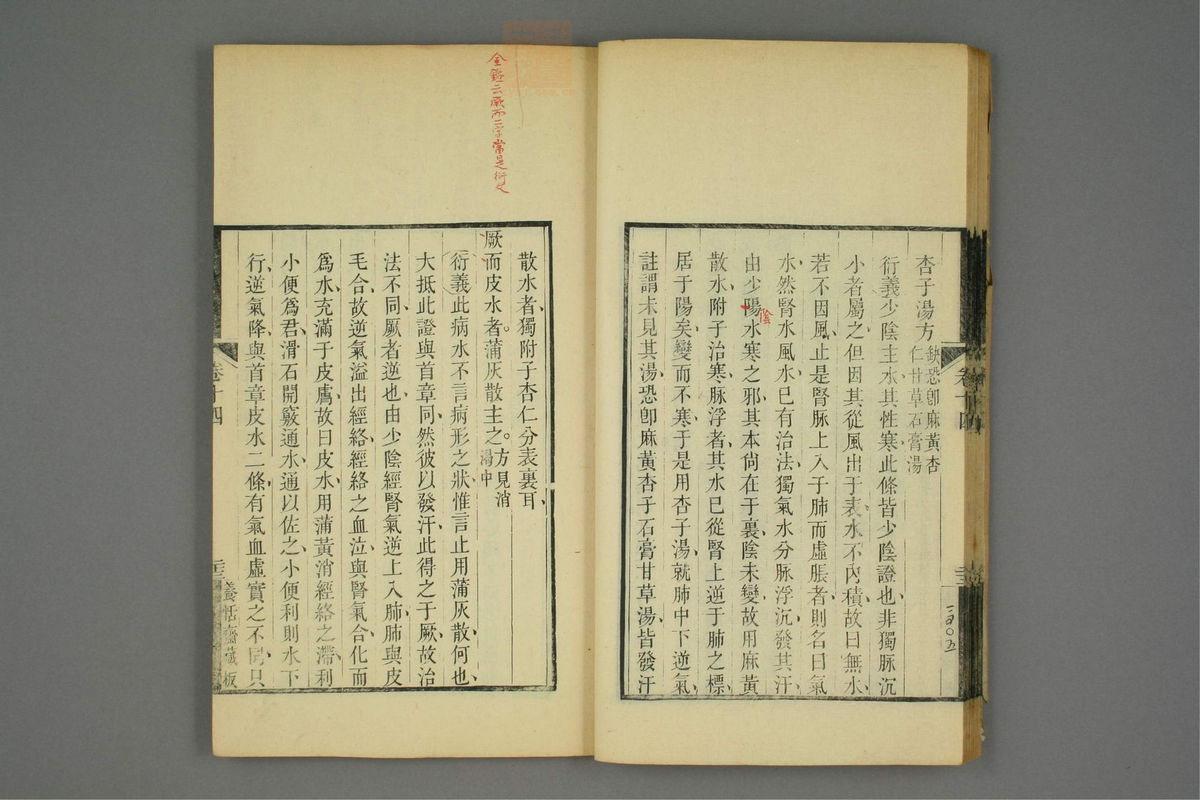 杏子湯方 缺恐卽麻黃杏
仁甘草石膏湯
衍義少陰主水其性寒此條皆少陰證也非獨脉沉
小者屬之但因其從風出于表水不內積故曰無水
若不因風止是腎脉上入于肺而虛脹者則名曰氣
水然腎水風水已有治法獨氣水分脉浮沉發其汗
由少陽水寒之邪其本尙在于裏陰未變故用麻黃
陰
散水附子治寒脉浮者其水已從腎上逆于肺之標
居于陽矣變而不寒于是用杏子湯就肺中下逆氣
註謂未見其湯恐卽麻黃杏子石膏甘草湯皆發汗
卷十四
二十三
一百〇五
散水者獨附子杏仁分表裏耳
厥而皮水者蒲灰散主之 方見消
渴中
衍義此病水不言病形之狀惟言止用蒲灰散何也
大抵此證與首章同然彼以發汗此得之于厥故治
法不同厥者逆也由少陰經腎氣逆上入肺肺與皮
毛合故逆氣溢出經絡經絡之血泣與腎氣合化而
爲水充滿于皮膚故曰皮水用蒲黃消經絡之滯利
小便爲君滑石開竅通水通以佐之小便利則水下
行逆氣降與首章皮水二條有氣血虛實之不同只
金鑑云厥而二字當是衍文
卷十四
二十三
養恬齋藏板